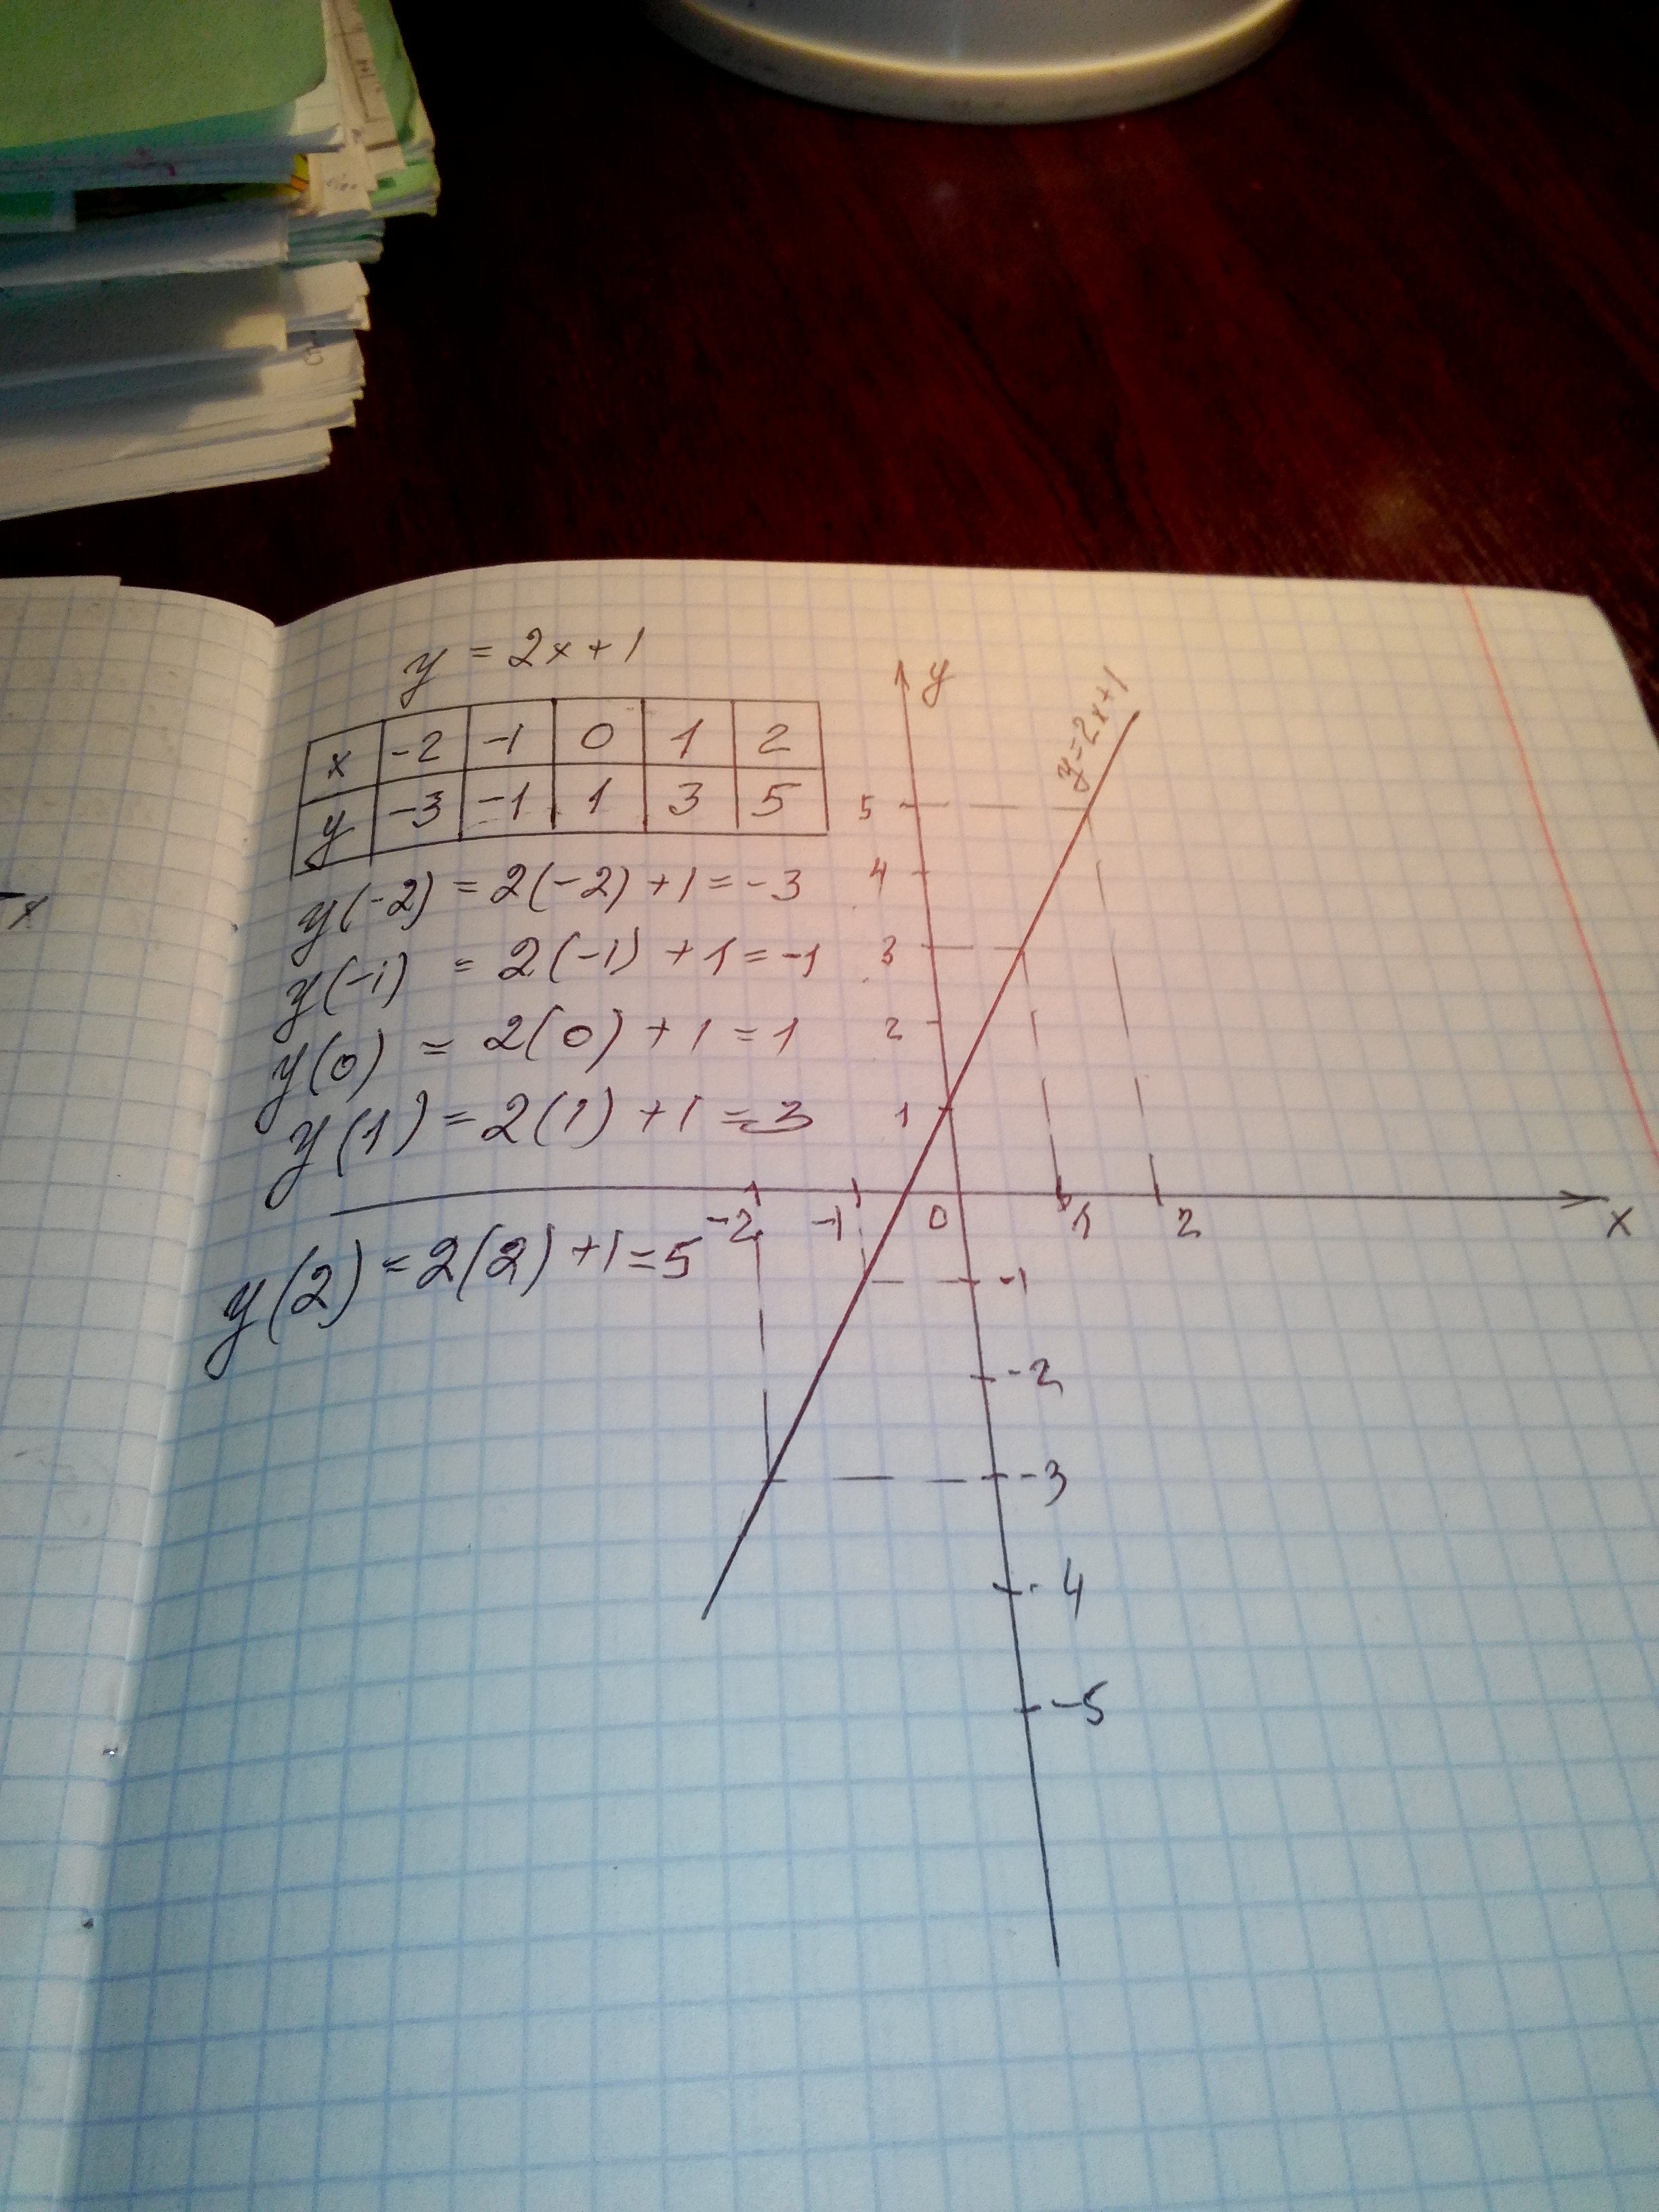 y = 2x+1
x -2 -1 0 1 2
y -3 -1 1 3 5
y(-2) = 2(-2) +1 = -3
y(-1) = 2(-1) +1 = -1
y(0) = 2(0) +1 = 1
y(1) = 2(1) +1 = 3
y(2) = 2(2) +1 = 5
y
y=2x+1
5
4
3
2
1
-2 -1 0 1 2
x
-1
-2
-3
-4
-5
x